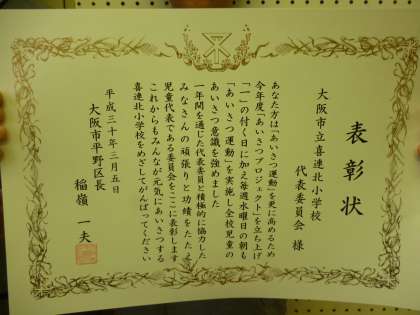 表彰状
大阪市立喜連北小学校
代表委員会 様
あなた方は「あいさつ運動」を更に高めるため
今年度「あいさつプロジェクト」を立ち上げ
「一」の付く日に加え毎週水曜日の朝も
「あいさつ運動」を実施し全校児童の
あいさつ意識を強めました
一年間を通じた代表委員と積極的に協力した
みなさんの頑張りと功績をたたえ
児童代表である委員会をここに表彰します
これからもみんなが元気にあいさつする
喜連北小学校をめざしてがんばってください
平成三十年三月五日
大阪市平野区長
稲嶺 一夫